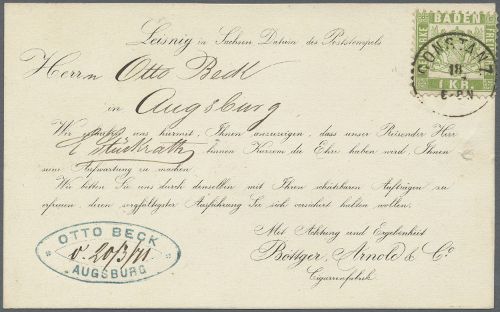 Leisnig in Sachsen Datum des Poststempels
BADEN
FREIMARKE
1 KR.
CONSTANZ
18
Herrn Otto Beck
in Augsburg
Wir uns hiermit, Ihnen anzuzeigen, dass unser Reisender Herr
binnen Kurzem die Ehre haben wird, Ihnen
seine Aufwartung zu machen.
Wir bitten Sie uns durch denselben mit Ihren schätzbaren Aufträgen zu
erfreuen, deren sorgfältigster Ausführung Sie sich versichert halten wollen.
Mit Achtung und Ergebenheit
Böttger, Arnold & Co
Cigarrenfabrik
OTTO BECK
v. 20/3/71.
AUGSBURG